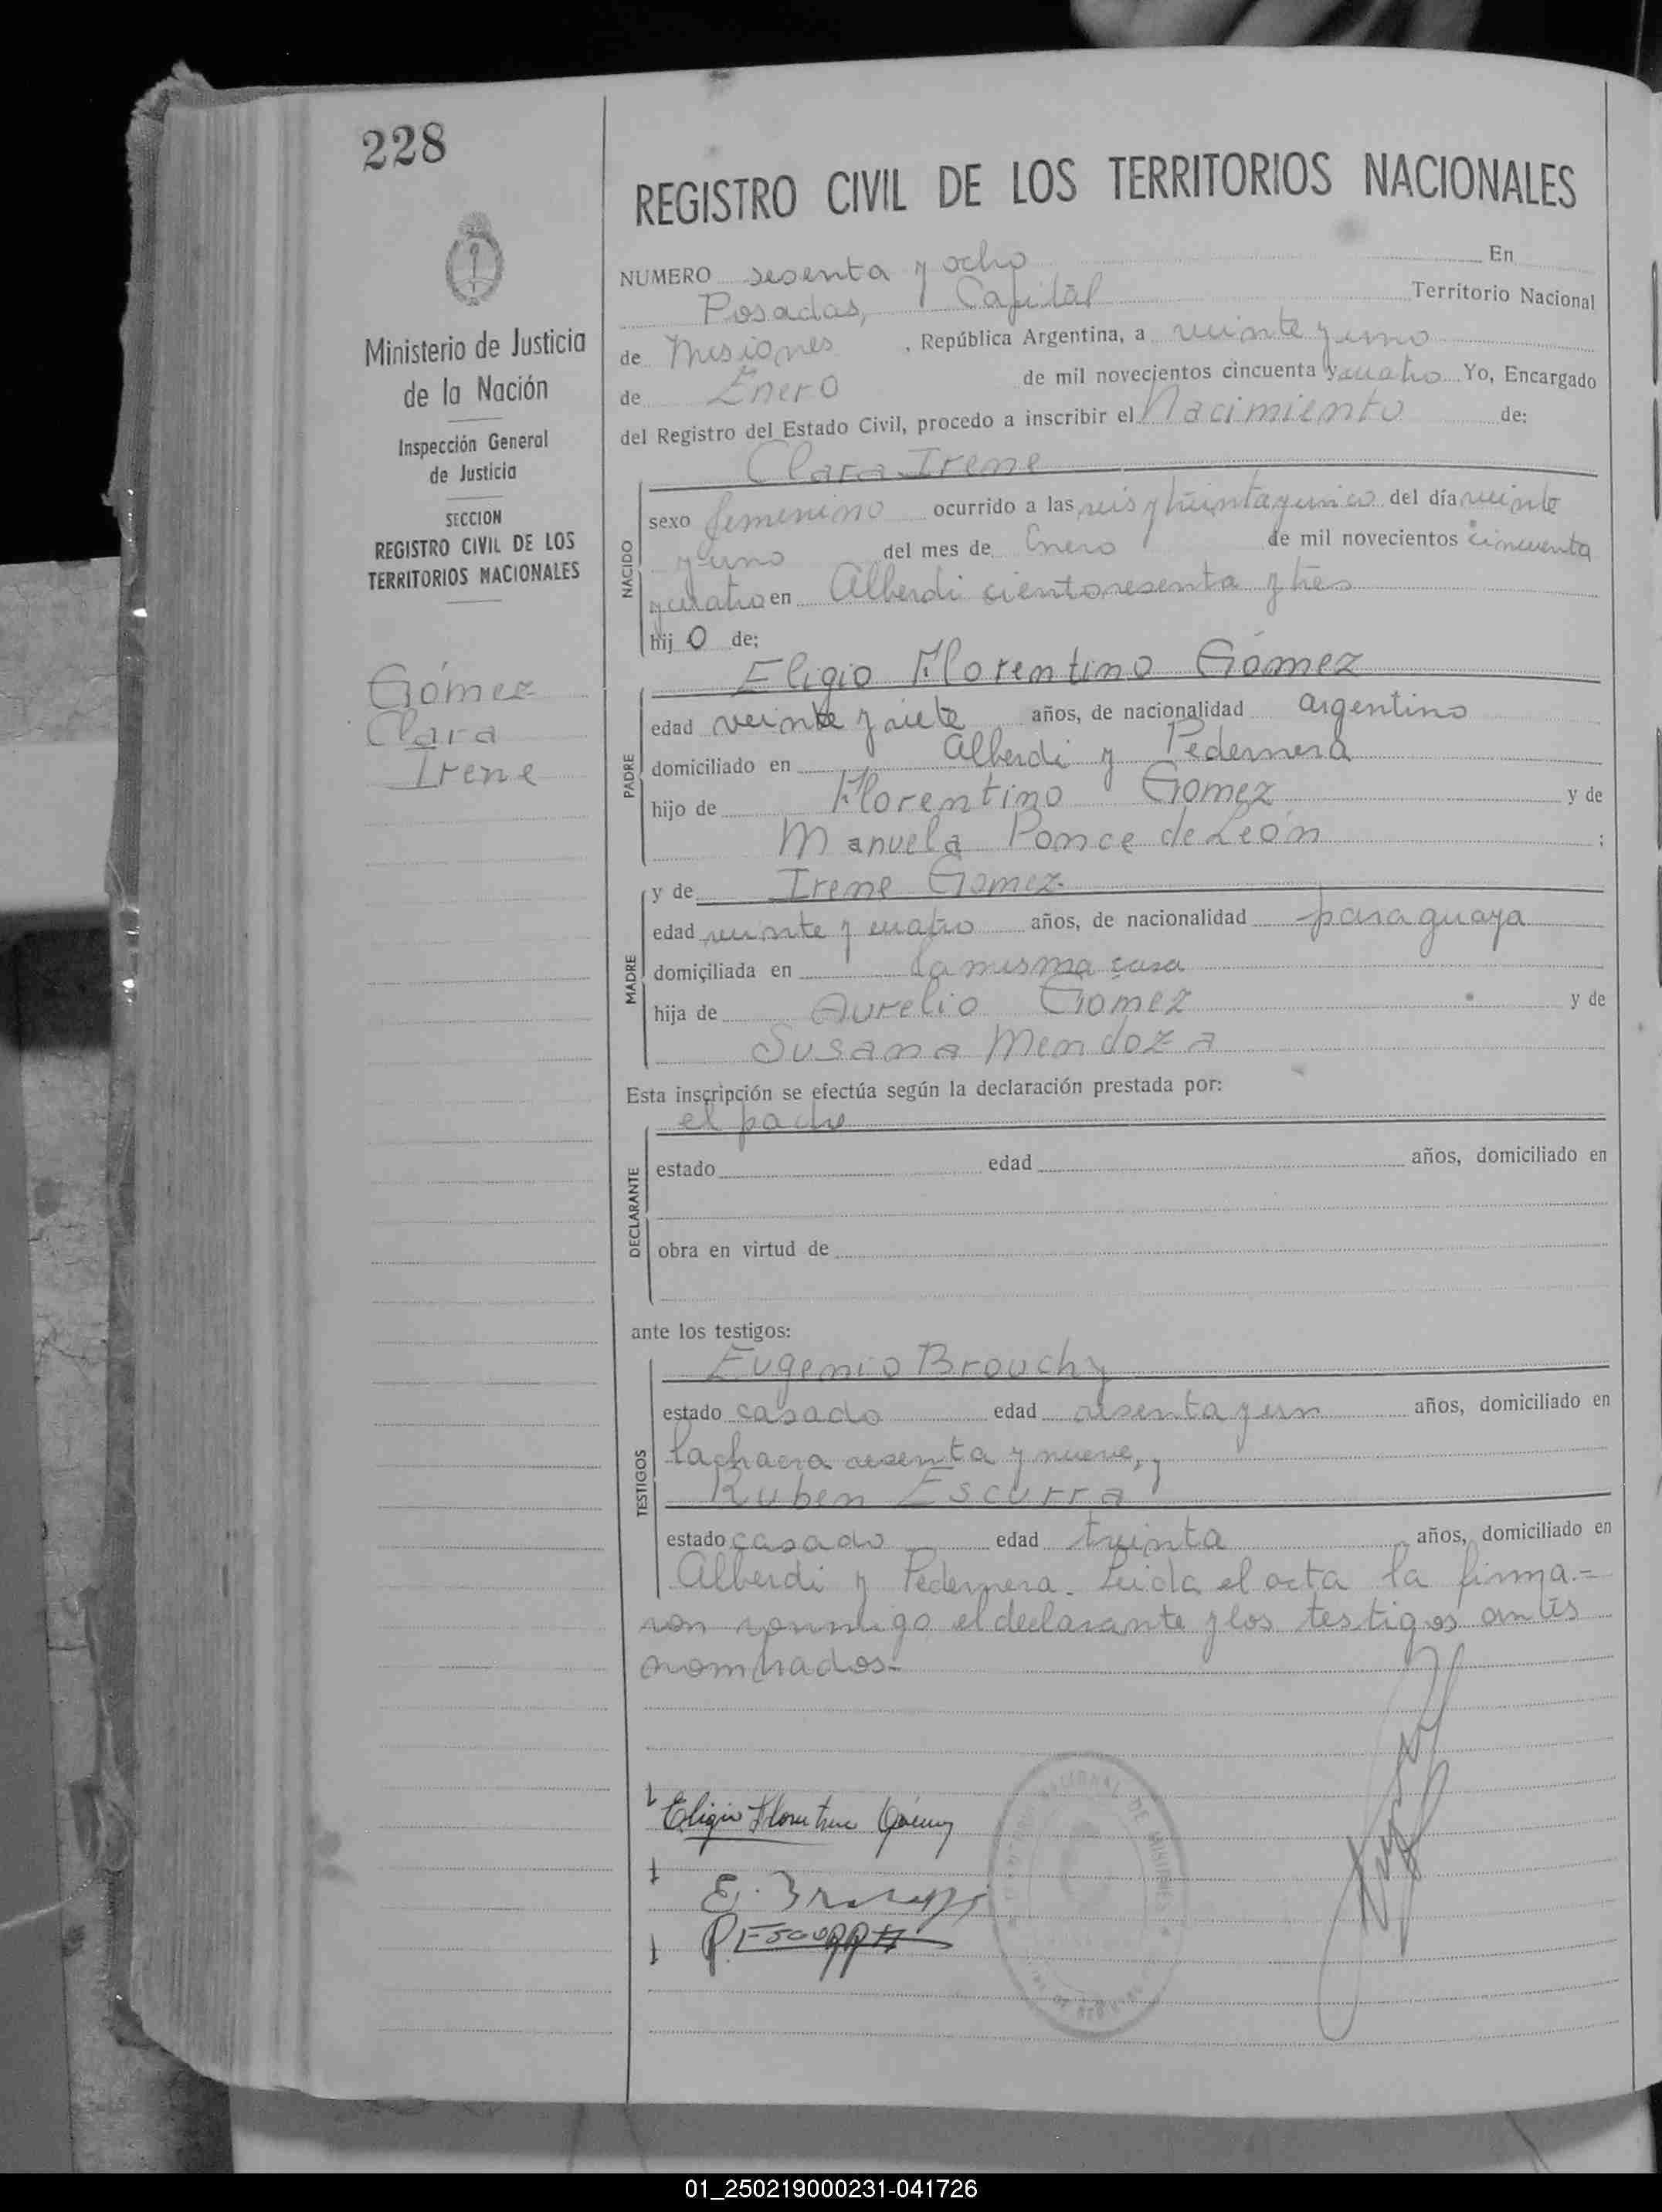 228
REGISTRO CIVIL DE LOS TERRITORIOS NACIONALES
Ministerio de Justicia
de la Nación
Inspección General
de Justicia
SECCION
REGISTRO CIVIL DE LOS
TERRITORIOS NACIONALES
Gómez
Clara
Irene
NUMERO sesenta y ocho En
Posadas, Capital Territorio Nacional
de Misiones , República Argentina, a veinte y uno
de Enero de mil novecientos cincuenta y cuatro Yo, Encargado
del Registro del Estado Civil, procedo a inscribir el Nacimiento de:
Clara Irene
NACIDO
sexo femenino ocurrido a las seis y treinta y cinco del día veinte
y uno del mes de Enero de mil novecientos cincuenta
y cuatro en Alberdi ciento sesenta y tres
hij o de:
Eligio Florentino Gómez
PADRE
edad veinte y siete años, de nacionalidad argentino
domiciliado en Alberdi y Pedernera
hijo de Florentino Gomez y de
Manuela Ponce de León ;
MADRE
y de Irene Gomez.
edad veinte y cuatro años, de nacionalidad paraguaya
domiciliada en la misma casa
hija de Aurelio Gómez y de
Susana Mendoza
Esta inscripción se efectúa según la declaración prestada por:
el padre
DECLARANTE
estado edad años, domiciliado en
obra en virtud de
ante los testigos:
TESTIGOS
Eugenio Brouchy
estado casado edad sesenta y un años, domiciliado en
la chacra sesenta y nueve, y
Ruben Escurra
estado casado edad treinta años, domiciliado en
Alberdi y Pedernera. Leida el acta la firma=
ron conmigo el declarante y los testigos antes
nombrados.-
Eligio Florentino Gómez
E. Brouchy
R. Escurra
01_250219000231-041726